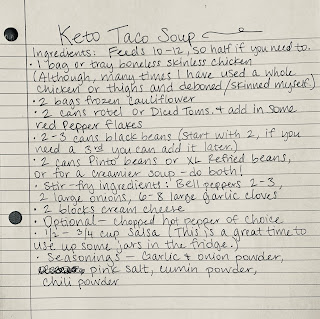 Keto Taco Soup
Ingredients: Feeds 10-12, so half if you need to.
• 1 bag or tray boneless skinless chicken
(Although, many times I have used a whole
chicken or thighs and deboned/skinned myself)
• 2 bags frozen Cauliflower
• 2 cans rotel or Diced Toms. & add in some
red Pepper flakes
• 2-3 cans black beans (Start with 2, if you
need a 3rd you can add it later)
• 2 cans Pinto beans or XL refried beans,
or for a creamier soup - do both!
• Stir-fry ingredients: Bell peppers 2-3,
2 large onions, 6-8 large garlic cloves
• 2 blocks cream cheese
• Optional - chopped hot pepper of choice
• 1/2 - 3/4 cup salsa (This is a great time to
use up some jars in the fridge.)
• Seasonings - Garlic & onion powder,
pink salt, cumin powder,
chili powder